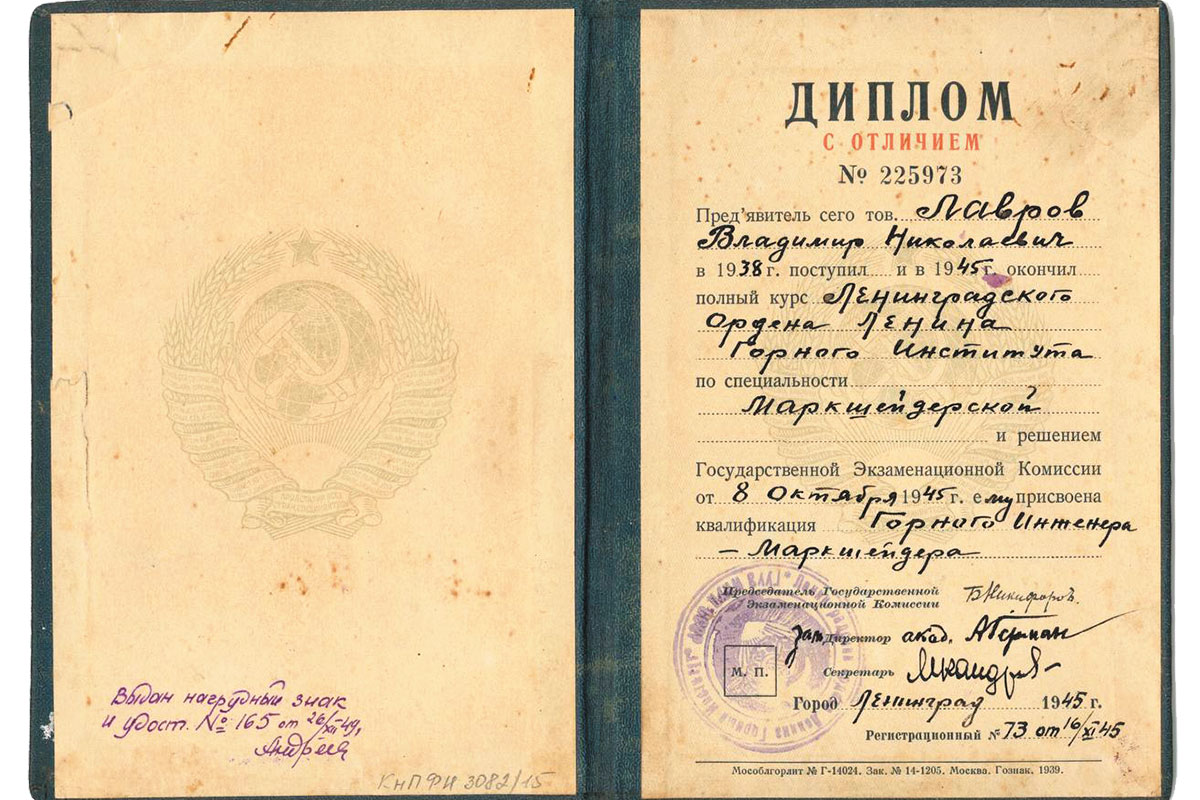 Выдан нагрудный знак
и удост. № 165 от 26/XII 49,
Андреев
КнПФИ 3082/15
ДИПЛОМ
С ОТЛИЧИЕМ
№ 225973
Пред'явитель сего тов. Лавров
Владимир Николаевич
в 1938 г. поступил и в 1945 г. окончил
полный курс Ленинградского
Ордена Ленина
Горного Института
по специальности
Маркшейдерской
и решением
Государственной Экзаменационной Комиссии
от 8 Октября 1945 г. ему присвоена
квалификация Горного Инженера
– Маркшейдера
Председатель Государственной
Экзаменационной Комиссии Б Никифоровъ.
зам Директор акад. А Герман
Секретарь
М. П.
Город Ленинград 1945 г.
Регистрационный № 73 от 16/XI 45
Мособлгорлит № Г-14024. Зак. № 14-1205. Москва. Гознак, 1939.